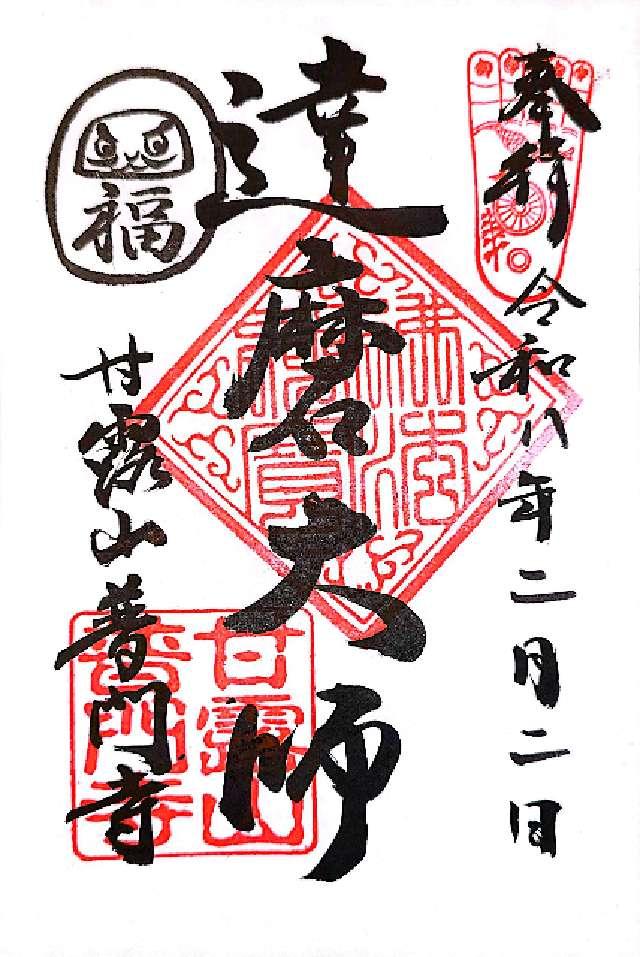 奉拝
令和八年二月二日
達磨大師
福
甘露山普門寺
甘露山
普門寺